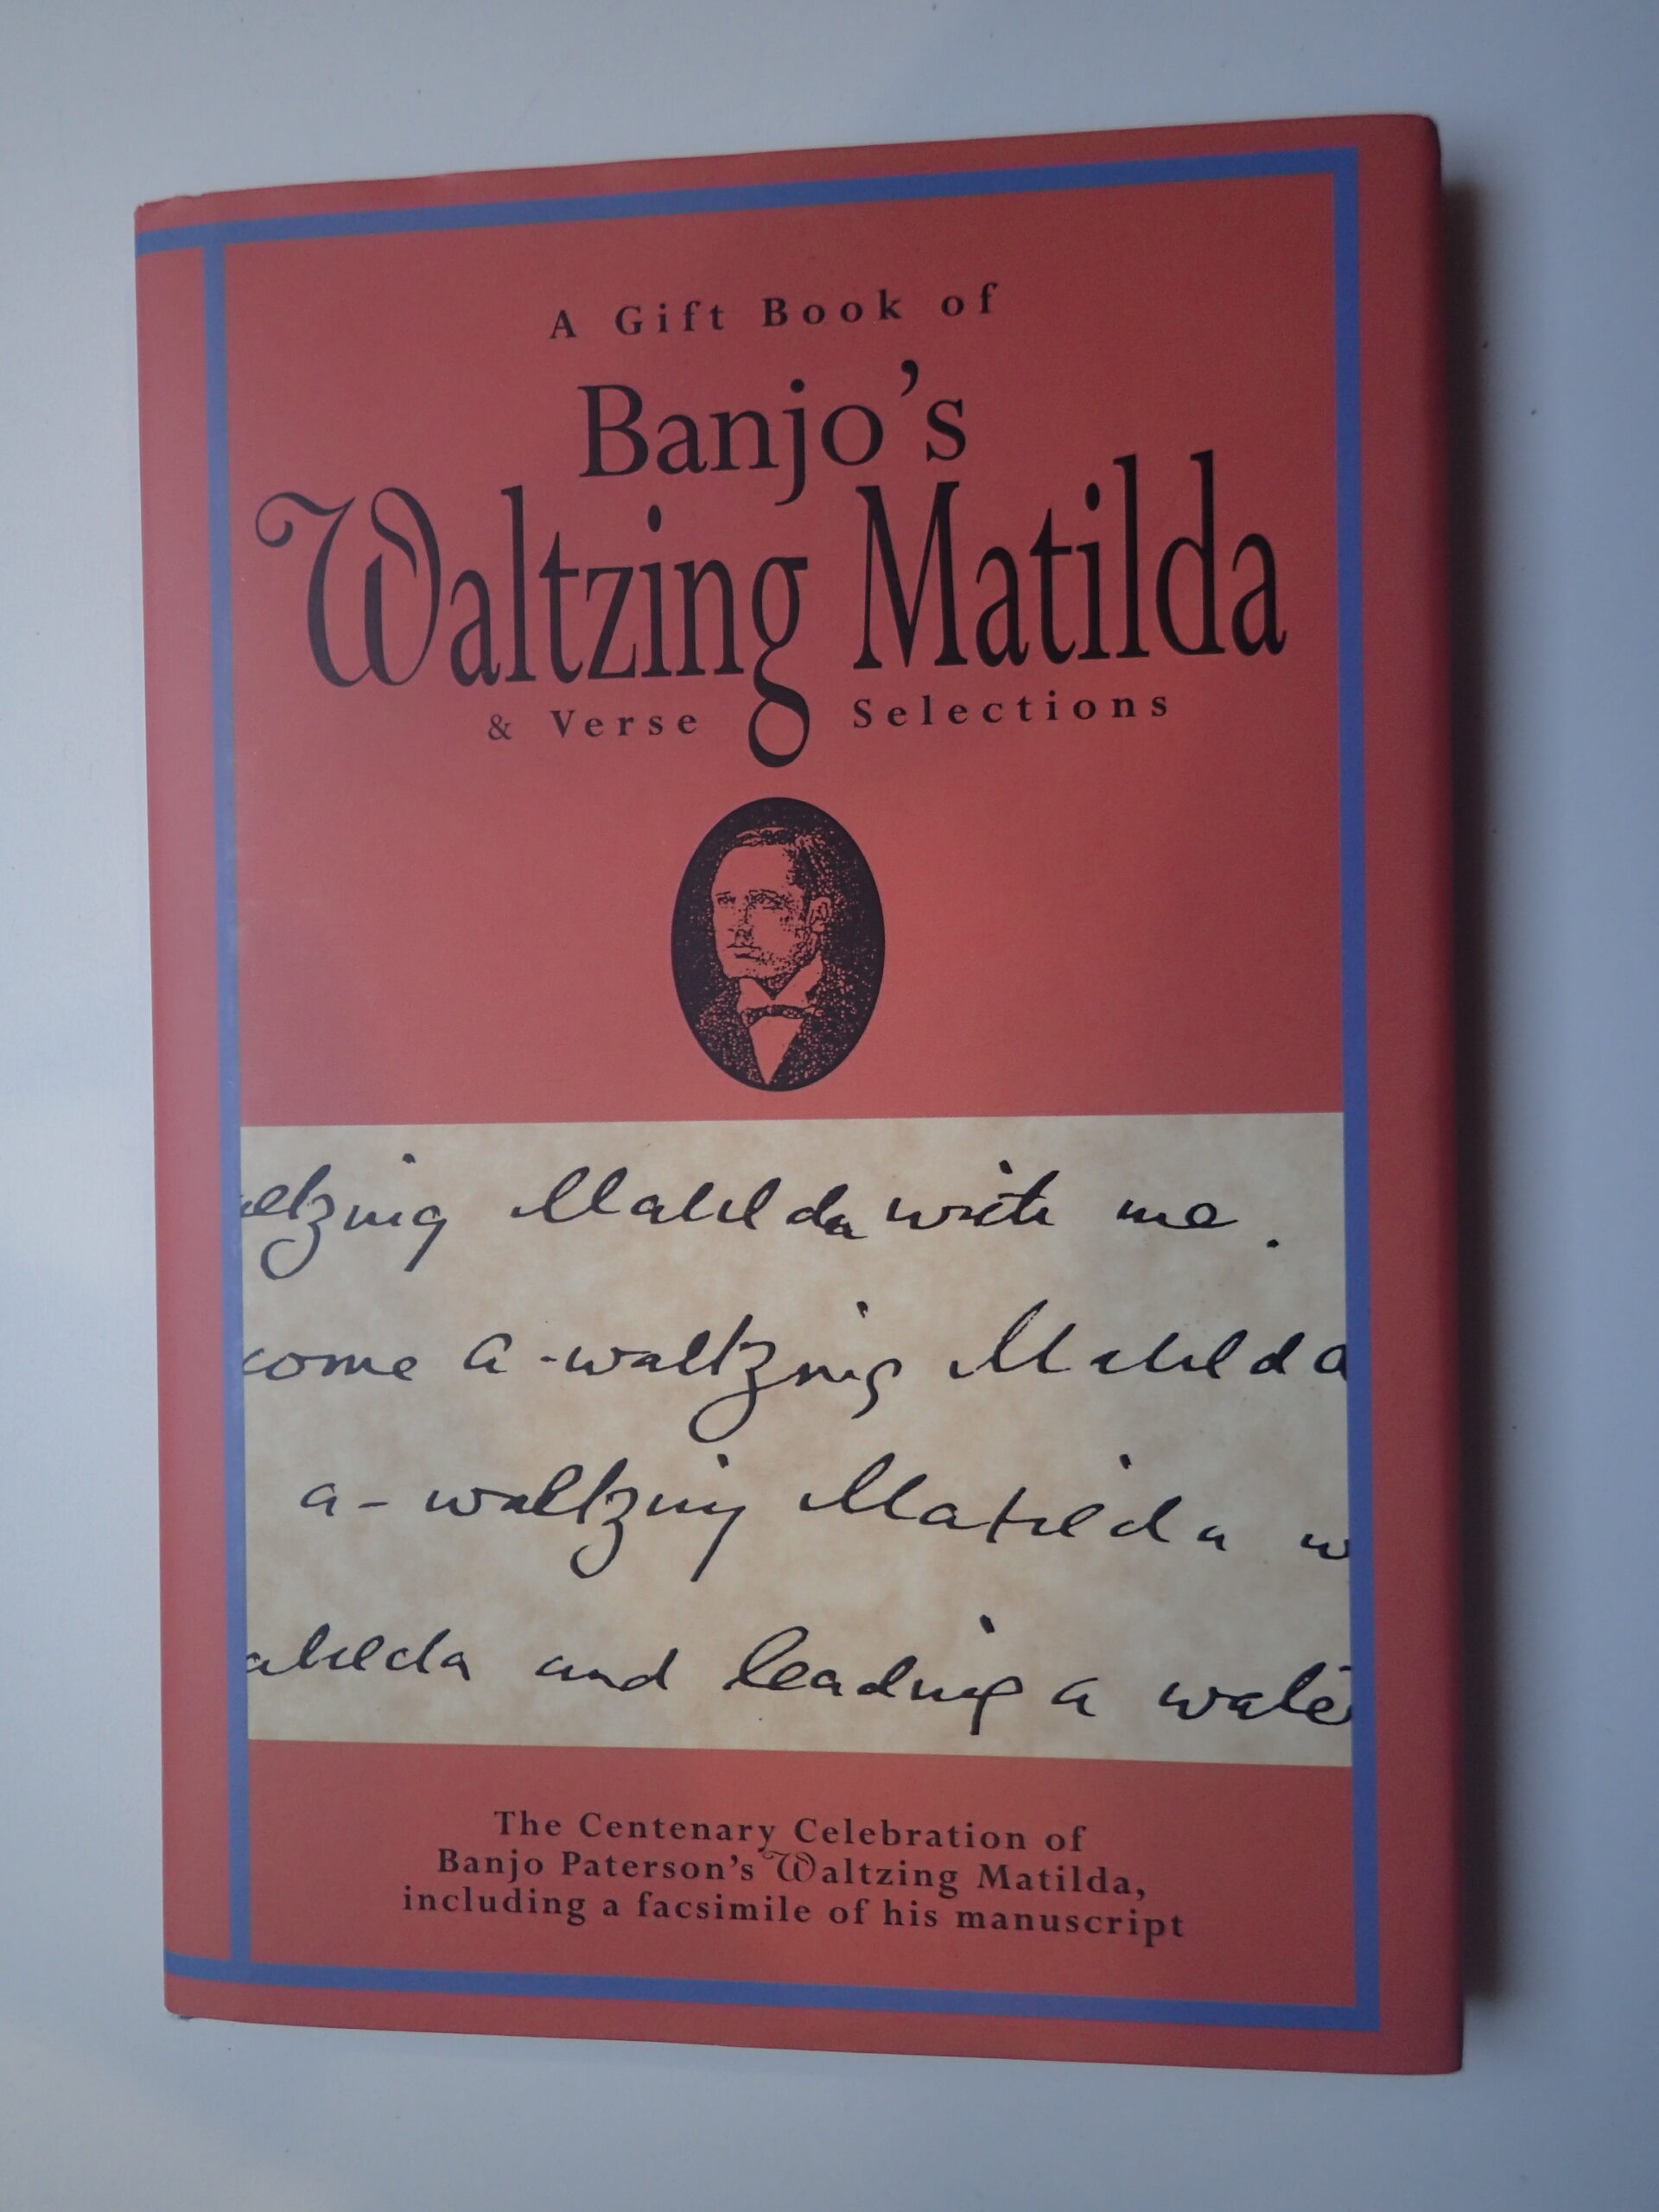 A Gift Book of
Banjo's
Waltzing Matilda
& Verse Selections
ltzing Matilda with me.
come a-waltzing Matilda
a-waltzing Matilda w
atilda and leading a wate
The Centenary Celebration of
Banjo Paterson's Waltzing Matilda,
including a facsimile of his manuscript